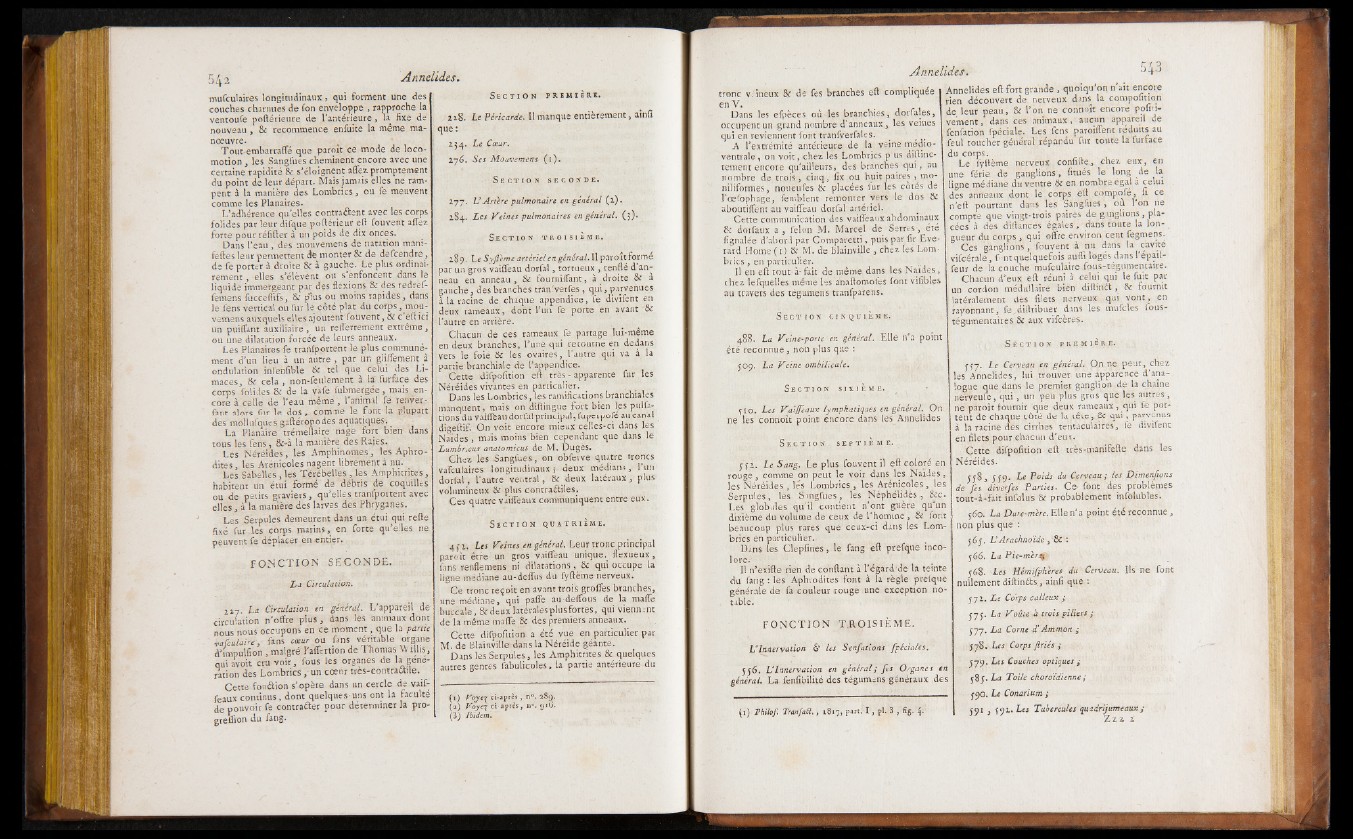 542
Annelides.
musculaires longitudinaux, qui forment une des
couches charnues de son enveloppe, rapproche la
ventouse postérieure de l'antérieure, la fixe de
nouveau, & recommence ensuite la même ma-
nœuvre.
Tout-embarrassé que paroît ce mode de loco-
motion, les Sangsues cheminent encore avec une
certaine rapidité & s'éloignent assez promptement
du point de leur départ. Mais jamais elles ne ram-
pent à la manière des Lombrics, ou se meuvent
comme les Planaires.
L'adhérence qu'elles contractent avec les corps
solides par leur disque postérieur est souvent assez
forte pour résister à un poids de dix onces.
Dans l'eau, des mouvemens de natation mani-
festes leur permettent de monter & de descendre,
de se porter à droite & à gauche. Le plus ordinai-
rement, elles s'élèvent ou s'enfoncent dans le
liquide immergeant par des flexions & des redres-
semens successifs, & plus ou moins rapides, dans
le sens vertical ou sur le côté plat du corps, mou-
vemens auxquels elles ajoutent souvent, & c'est ici
un puissant auxiliaire, un resserrement extrême,
ou une dilatation forcée de leurs anneaux.
Les Planaires se transportent le plus communé-
ment d'un lieu à un autre, par un glissement à
ondulation insensible & tel que celui des Li-
maces, & cela, non-seulement à la surface des
corps solides & de la vase submergée, mais en-
core à celle de l'eau même, l'animal se renver-
sant alors sur le dos, comme le font la plupart
des mollusques gastéropodes aquatiques.
La Planaire trémellaire nage fort bien dans
tous les sens, & à la manière des Rajes.
Les Néréides, les Amphinomes, les Aphro-
dites, les Arénicoles nagent librement à nu.
Les Sabelles, les Térébelles, les Amphitrites,
habitent un étui formé de débris de coquilles
ou de petits graviers, qu'elles transportent avec
elles, à la manière des larves des Phryganes.
Les Serpules demeurent dans un étui qui reste
fixé sur les corps marins, en sorte qu'elles ne
peuvent se déplacer en entier.
FONCTION SECONDE.
La Circulation.
227. La Circulation en général. L'appareil de
circulation n'offre plus, dans les animaux dont
nous nous occupons en ce moment, que la partie
vasculaire, sans cœur ou sans véritable organe
d'impulsion, malgré l'assertion de Thomas Willis,
qui avoit cru voir, sous les organes de la géné-
ration des Lombrics, un cœur très-contractile.
Cette fonction s'opère dans un cercle de vais-
seaux continus, dont quelques-uns ont la faculté
de pouvoir se contracter pour déterminer la pro-
gression du sang.
SECTION PREMIÈRE.
228. Le Péricarde. Il manque entièrement, ainsi
que :
234. Le Cœur.
276. Ses Mouvemens (1).
SECTION SECONDE.
277. L'Artère pulmonaire en général (2).
284. Les Veines pulmonaires en général. (3).
SECTION TROISIÈME.
289. Le Système artériel en général. Il paroît formé
par un gros vaisseau dorsal, tortueux, renflé d'an-
neau en anneau, & fournissant, à droite & à
gauche, des branches transverses, qui, parvenues
à la racine de chaque appendice, se divisent en
deux rameaux, dont l'un se porte en avant &
l'autre en arrière.
Chacun de ces rameaux se partage lui-même
en deux branches, l'une qui retourne en dedans
vers le foie & les ovaires, l'autre qui va à la
partie branchiale de l'appendice.
Cette disposition est très-apparente sur les
Néréides vivantes en particulier.
Dans les Lombrics, les ramifications branchiales
manquent, mais on distingue fort bien les pulsa-
tions du vaisseau dorsal principal, superposé au canal
digestif. On voit encore mieux celles-ci dans les
Naïdes, mais moins bien cependant que dans le
Lumbricus anatomicus de M. Dugès.
Chez les Sangsues, on observe quatre troncs
vasculaires longitudinaux; deux médians, l'un
dorsal, l'autre ventral, & deux latéraux, plus
volumineux & plus contractiles.
Ces quatre vaisseaux communiquent entre eux.
SECTION QUATRIÈME.
451. Les Veines en général. Leur tronc principal
paroît être un gros vaisseau unique, flexueux,
sans renflemens ni dilatations, & qui occupe la
ligne médiane au-dessus du système nerveux.
Ce tronc reçoit en avant trois grosses branches,
une médiane, qui passe au-dessous de la masse
buccale, & deux latérales plus fortes, qui viennent
de la même masse & des premiers anneaux.
Cette disposition a été vue en particulier par
M. de Blainville dans la Néréide géante.
Dans les Serpules, les Amphitrites & quelques
autres genres sabulicoles, la partie antérieure du
(1) Voyez ci-après, n°. 289.
(2) Voyez ci-après, n°. 916.
(3) Ibidem.
Annelides.
543
tronc veineux & de ses branches est compliquée
en V.
Dans les espèces où les branchies, dorsales,
occupent un grand nombre d'anneaux, les veines
qui en reviennent sont transversales.
A l'extrémité antérieure de la veine médio-
ventrale, on voit, chez les Lombrics plus distinc-
tement encore qu'ailleurs, des branches qui, au
nombre de trois, cinq, six ou huit paires, mo-
niliformes, noueuses & placées sur les côtés de
l'œsophage, semblent remonter vers le dos &
aboutissent au vaisseau dorsal artériel.
Cette communication des vaisseaux abdominaux
& dorsaux a, selon M. Marcel de Serres, été
signalée d'abord par Comparetti, puis par sir Eve-
rard Home (1) & M. de Blainville, chez les Lom-
brics, en particulier.
Il en est tout-à-fait de même dans les Naïdes,
chez lesquelles même les anastomoses sont visibles
au travers des tégumens transparens.
SECTION CINQUIÈME.
488. La Veine-porte en général. Elle n'a point
été reconnue, non plus que :
509. La Veine ombilicale.
SECTION SIXIÈME.
510. Les Vaisseaux lymphatiques en général. On
ne les connoît point encore dans les Annelides
SECTION SEPTIÈME.
552. Le Sang. Le plus souvent il est coloré en
rouge, comme on peut le voir dans les Naïdes,
les Néréides, les Lombrics, les Arénicoles, les
Serpules, les Sangsues, les Néphélides, &c.
Les globules qu'il contient n'ont guère qu'un
dixième du volume de ceux de l'homme, & sont
beaucoup plus rares que ceux-ci dans les Lom-
brics en particulier.
Dans les Clepsines, le sang est presque inco-
lore.
Il n'existe rien de constant à l'égard de la teinte
du sang : les Aphrodites font à la règle presque
générale de sa couleur rouge une exception no-
table.
FONCTION TROISIÈME.
L'Innervation & les Sensations spéciales.
556. L'Innervation en général; ses Organes en
général. La sensibilité des tégumens généraux des
(1) Philos. Transact., 1817, part. I, pl. 3, fig. 4.
Annelides est fort grande, quoiqu'on n'ait encore
rien découvert de nerveux dans la composition
de leur peau, & l'on ne connoît encore positi-
vement, dans ces animaux, aucun appareil de
sensation spéciale. Les sens paroissent réduits au
seul toucher général répandu sur toute la surface
du corps.
Le système nerveux consiste, chez eux, en
une série de ganglions, situés le long de la
ligne médiane du ventre & en nombre égal à celui
des anneaux dont le corps est composé, si ce
n'est pourtant dans les Sangsues, où l'on ne
compte que vingt-trois paires de ganglions, pla-
cées à des distances égales, dans toute la lon-
gueur du corps, qui offre environ cent segmens.
Ces ganglions, souvent à nu dans la cavité
viscérale, sont quelquefois aussi logés dans l'épais-
seur de la couche musculaire sous-tégumentaire.
Chacun d'eux est réuni à celui qui le suit par
un cordon médullaire bien distinct, & fournit
latéralement des filets nerveux qui vont, en
rayonnant, se distribuer dans les muscles sous-
tégumentaires & aux viscères.
SECTION PREMIÈRE.
557. Le Cerveau en général. On ne peut, chez
les Annelides, lui trouver une apparence d'ana-
logue que dans le premier ganglion de la chaîne
nerveuse, qui, un peu plus gros que les autres,
ne paroît fournir que deux rameaux, qui se por-
tent de chaque côté de la tête, & qui, parvenus
à la racine des cirrhes tentaculaires, se divisent
en filets pour chacun d'eux.
Cette disposition est très-manifeste dans les
Néréides.
558, 559. Le Poids du Cerveau; les Dimensions
de ses diverses Parties. Ce sont des problèmes
tout-à-fait insolus & probablement insolubles.
560. La Dure-mère. Elle n'a point été reconnue,
non plus que :
565. L'Arachnoïde, & :
566. La Pie-mère.
568. Les Hémisphères du Cerveau. Ils ne sont
nullement distincts, ainsi que :
572. Le Corps calleux;
575. La Voûte à trois piliers;
577. La Corne d'Ammon;
578. Les Corps striés;
579. Les Couches optiques;
585. La Toile choroïdienne;
590. Le Conarium;
591, 592. Les Tubercules quadrijumeaux;
Zzz 2